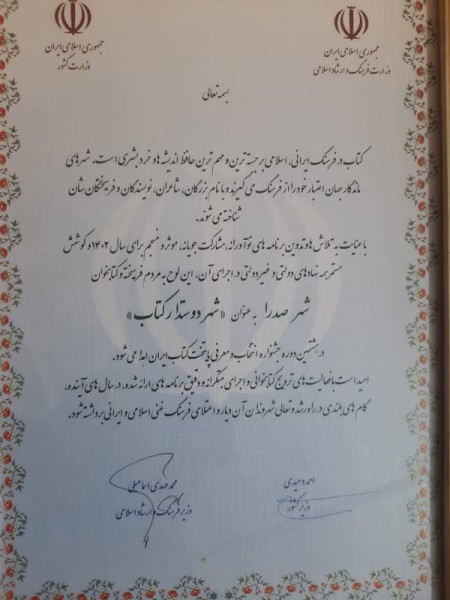 جمهوری اسلامی ایران
وزارت فرهنگ و ارشاد اسلامی
جمهوری اسلامی ایران
وزارت کشور
بسمه تعالی
کتاب در فرهنگ ایرانی، اسلامی برجسته ترین و مهم ترین حافظ اندیشه ها و خرد بشری است، شهرهای
ماندگار جهان اعتبار خود را از فرهنگ می گیرند و با نام بزرگان، شاعران، نویسندگان و فرهیختگان شان
شناخته می شوند.
با عنایت به تلاش ها و تدوین برنامه های نوآورانه، مشارکت جویانه، موثر و منسجم برای سال ۱۴۰۲ و کوشش
مستمر همه نهادهای دولتی و غیر دولتی در اجرای آن، این لوح به مردم فرهیخته و کتابخوان
شهر صدرا به عنوان «شهر دوستدار کتاب»
در هشتمین دوره جشنواره انتخاب و معرفی پایتخت کتاب ایران اهدا می شود.
امید است با فعالیت های ترویج کتابخوانی و اجرای پیگرانه و دقیق برنامه های ارائه شده، در سال های آینده،
گام های بلندی در راه رشد و تعالی شهروندان آن دیار و اعتلای فرهنگ غنی اسلامی و ایرانی برداشته شود.
احمد وحیدی
وزیر کشور
محمد مهدی اسماعیلی
وزیر فرهنگ و ارشاد اسلامی